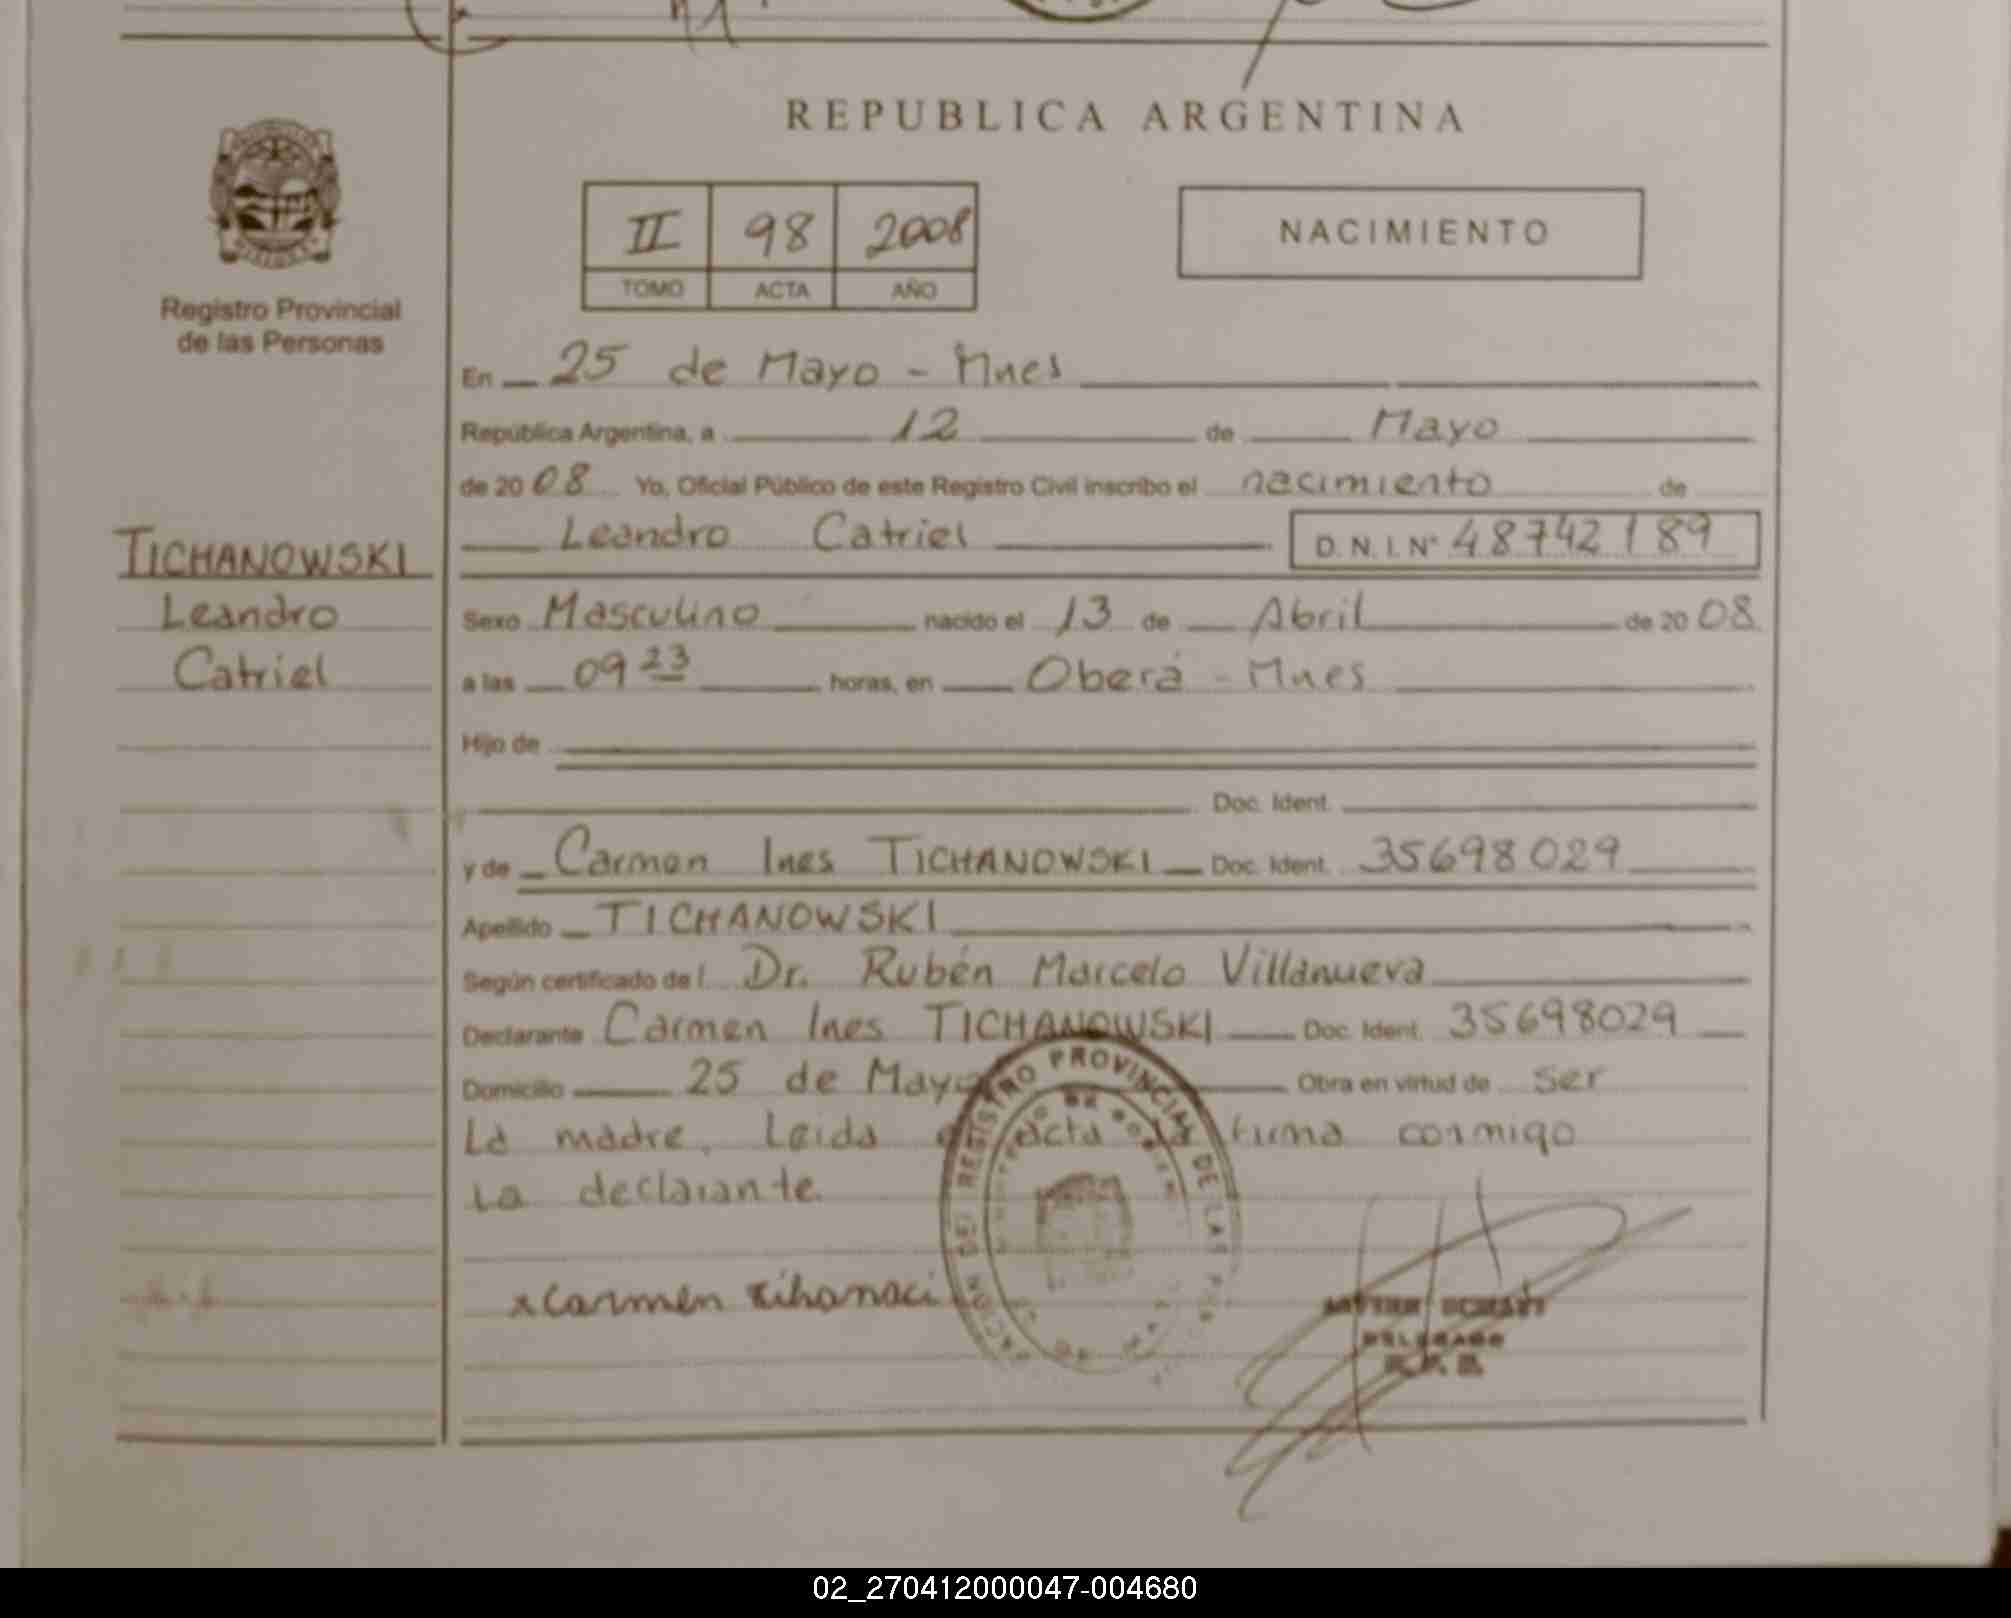 REPUBLICA ARGENTINA
II 98 2008
TOMO ACTA AÑO
NACIMIENTO
Registro Provincial
de las Personas
TICHANOWSKI
Leandro
Catriel
En 25 de Mayo - Mnes
República Argentina, a 12 de Mayo
de 2008 Yo, Oficial Público de este Registro Civil inscribo el nacimiento de
Leandro Catriel D.N.I.N° 48742189
Sexo Masculino nacido el 13 de Abril de 2008
a las 09 23 horas, en Oberá - Mnes
Hijo de
Doc. Ident.
y de Carmen Ines TICHANOWSKI Doc. Ident. 35698029
Apellido TICHANOWSKI
Según certificado del Dr. Rubén Marcelo Villanueva
Declarante Carmen Ines TICHANOWSKI Doc. Ident. 35698029
Domicilio 25 de Mayo Obra en virtud de ser
La madre. Leida acta la firma conmigo
La declarante.
x Carmen
REGISTRO PROVINCIAL DE LAS
DELEGADO
02_270412000047-004680